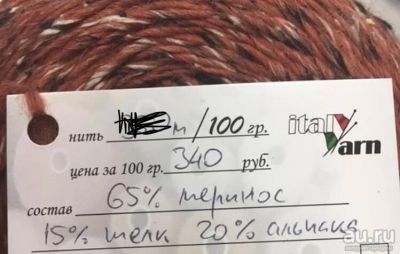 нить м/100 гр.
italYarn
цена за 100 гр. 340 руб.
состав 65% меринос
15% шелк 20% альпака
au.ru